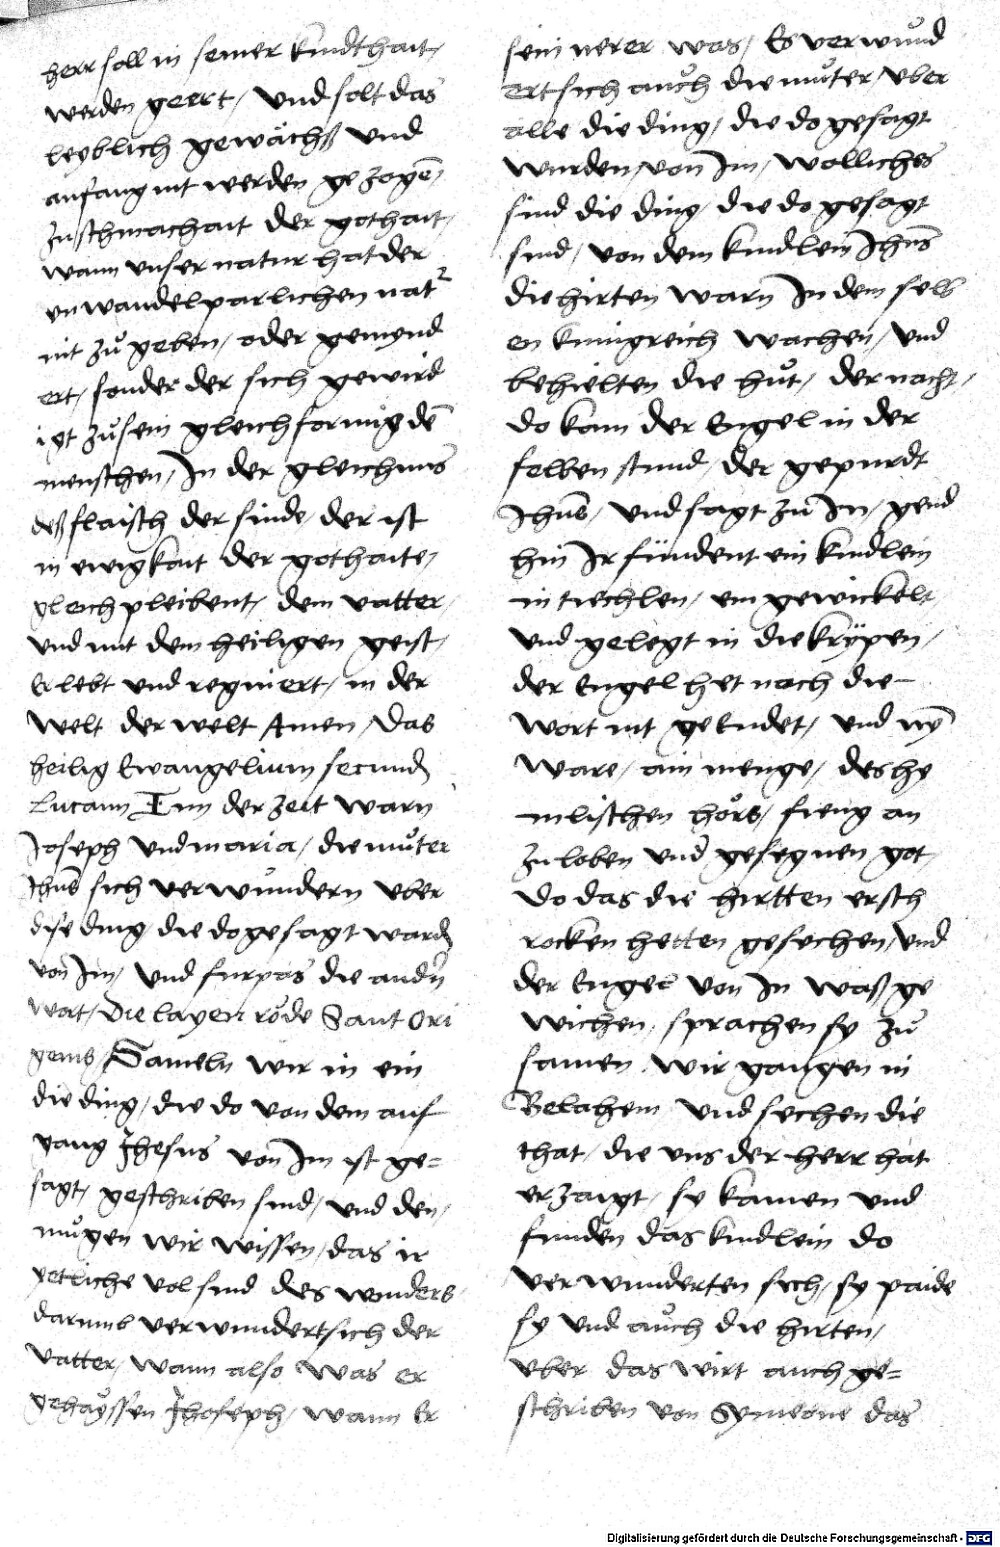 herr soll in seiner kindthait /
werden geert / und solt das
leyblich gewächß und
anfang nit werden gezogē /
zu schmachait der gothait /
wann unser natur hat der
unwandelparlichen nat²
nit zů geben / oder gemynd
ert / sonder der sich gewird
igt zů sein gleichformig dē
menschen / In der gleichnus
deß flaisch der sinde / der ist
in ewigkait der gothaite /
gleich pleibent / dem vatter /
und mit dem heiligen geist /
Er lebt und regniert / in der
welt der welt Amen / Das
heilig Ewangelium secund
Lucam Inn der zeit warn
Joseph und maria / die můter
Jhus sich verwundern uber
dise ding / die do gesagt ward
von Im / und furpas die andn
wat / Die layen rőde Sant Ori
genis / Sameln wir in ein
die ding / die do von dem anf
gang Jhesus von Im ist ge=
sagt / geschriben sind / und den /
mügen wir wissen / das ir
yetliche vol sind des wonders /
darumb verwundert sich der
vatter / wann also was er
gehayssen Jhoseph / wann Er
sein nerer was / Es verwund
ert sich auch die můter / uber
alle die ding / die do gesagt
wurden / von Im / wolliches
sind die ding / die do gesagt
sind / von dem kindlein Jhus
die hirten warn In dem selb
en kunigreich wachen / und
behielten die hůt / der nacht /
do kam der Engel in der
selben stund / der gepurdt
Jhus / und sagt zu In / gend
hin Ir findent ein kindlein
in tiechlen / ein gewickelt /
und gelegt in die krypen /
der Engel het nach die
wort nit geendet / und ny
ware / ain menge / des he
mlischen hőrs / fieng an
zu loben und gesegnen got /
do das die hirtten ersch
rocken hetten gesechen / und
der Engel von In waß ge
wichen / sprachen sy zů
samen / wir gangen in
Betlahem und sechen die
that / die uns der herr hat
erzaigt / sy kamen und
funden das kindlein do
verwunderten sich / sy paide
sy und auch die hirten /
uber das wirt auch ge=
schriben von Symeone das
Digitalisierung gefördert durch die Deutsche Forschungsgemeinschaft - DFG